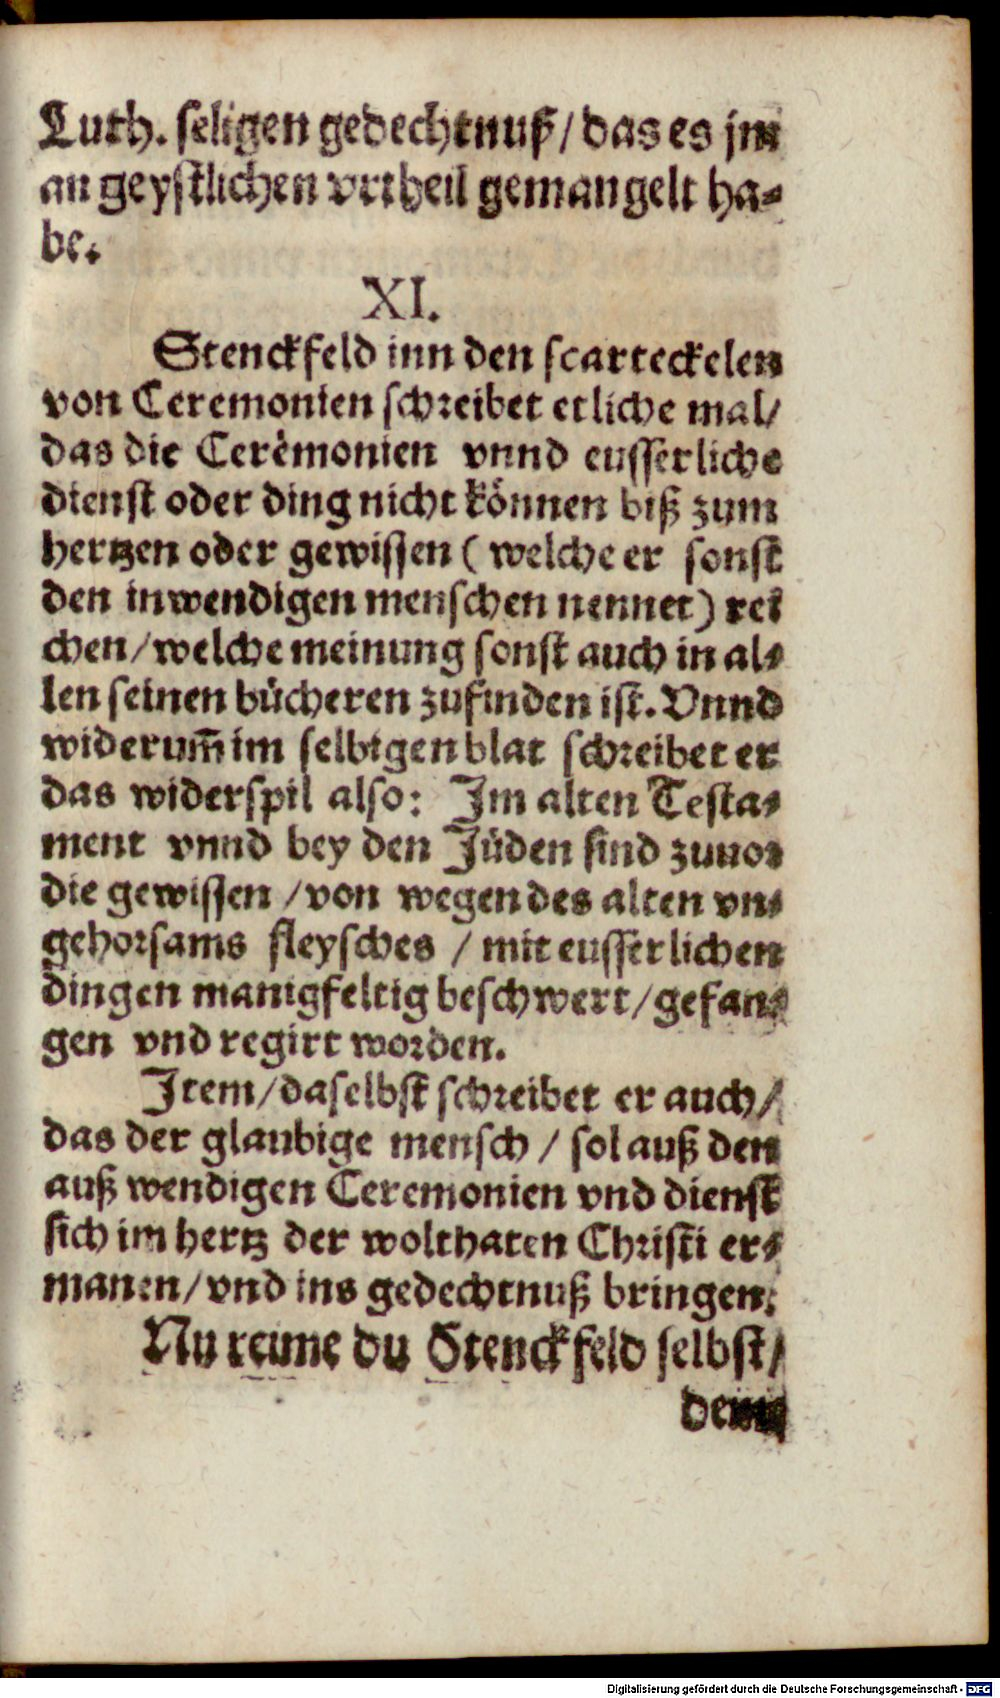 Luth. seligen gedechtnuß / das es jm
an geystlichen vrtheil gemangelt ha-
be.
XI.
Stenckfeld inn den scarteckelen
von Ceremonien schreibet etliche mal /
das die Ceremonien vnnd eusserliche
dienst oder ding nicht können biß zum
hertzen oder gewissen ( welche er sonst
den inwendigen menschen nennet ) rei
chen / welche meinung sonst auch in al-
len seinen bücheren zufinden ist. Vnnd
widerum̃ im selbigen blat schreibet er
das widerspil also: Im alten Testa-
ment vnnd bey den Jüden sind zuuor
die gewissen / von wegen des alten vn-
gehorsams fleysches / mit eusserlichen
dingen manigfeltig beschwert / gefan-
gen vnd regirt worden.
Item / daselbst schreibet er auch /
das der glaubige mensch / sol auß den
auß wendigen Ceremonien vnd dienst
sich im hertz der wolthaten Christi er-
manen / vnd ins gedechtnuß bringen.
Nu reime du Stenckfeld selbst /
Digitalisierung gefördert durch die Deutsche Forschungsgemeinschaft - DFG